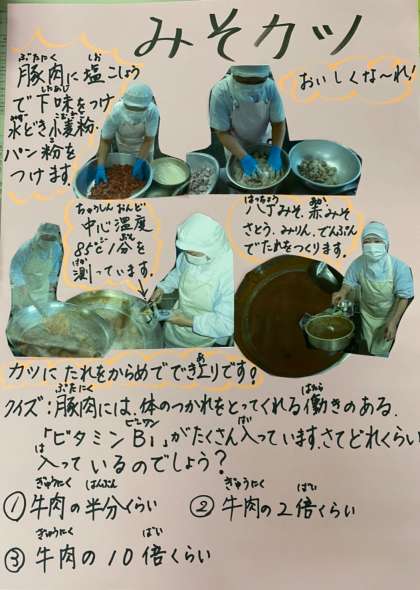 みそカツ
豚肉に塩こしょう
で下味をつけ
水どき小麦粉・
パン粉を
つけます
おいしくな〜れ!
中心温度
85℃1分を
測っています。
八丁みそ、赤みそ
さとう、みりん、でんぷん
でたれをつくります。
カツにたれをからめてでき上りです。
クイズ:豚肉には、体のつかれをとってくれる働きのある、
「ビタミンB1」がたくさん入っています。さてどれくらい
入っているのでしょう?
①牛肉の半分くらい ②牛肉の2倍くらい
③牛肉の10倍くらい